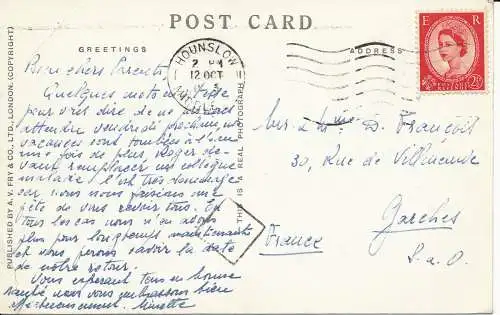 POST CARD
GREETINGS
ADDRESS
PUBLISHED BY A. V. FRY & CO., LTD., LONDON. (COPYRIGHT)
THIS IS A REAL PHOTOGRAPH
HOUNSLOW
2 PM
12 OCT
E R
POSTAGE
REVENUE
2½D
Bien chers Parents
Quelques mots en hâte
pour vous dire de ne pas nous
attendre vendredi prochain, nos
vacances sont tombées à l'eau
une fois de plus, Roger de-
vant remplacer un collègue
malade. C'est très dommage
car nous nous faisions une
fête de vous revoir tous. En
tous les cas nous n'en avons
plus pour longtemps maintenant
et vous ferons savoir la date
de notre retour.
Vous espérant tous en bonne
santé, nous vous embrassons bien
affectueusement. Minette
Mr & Mme D. François
30, Rue de Villeneuve
Garches
S. & O.
France